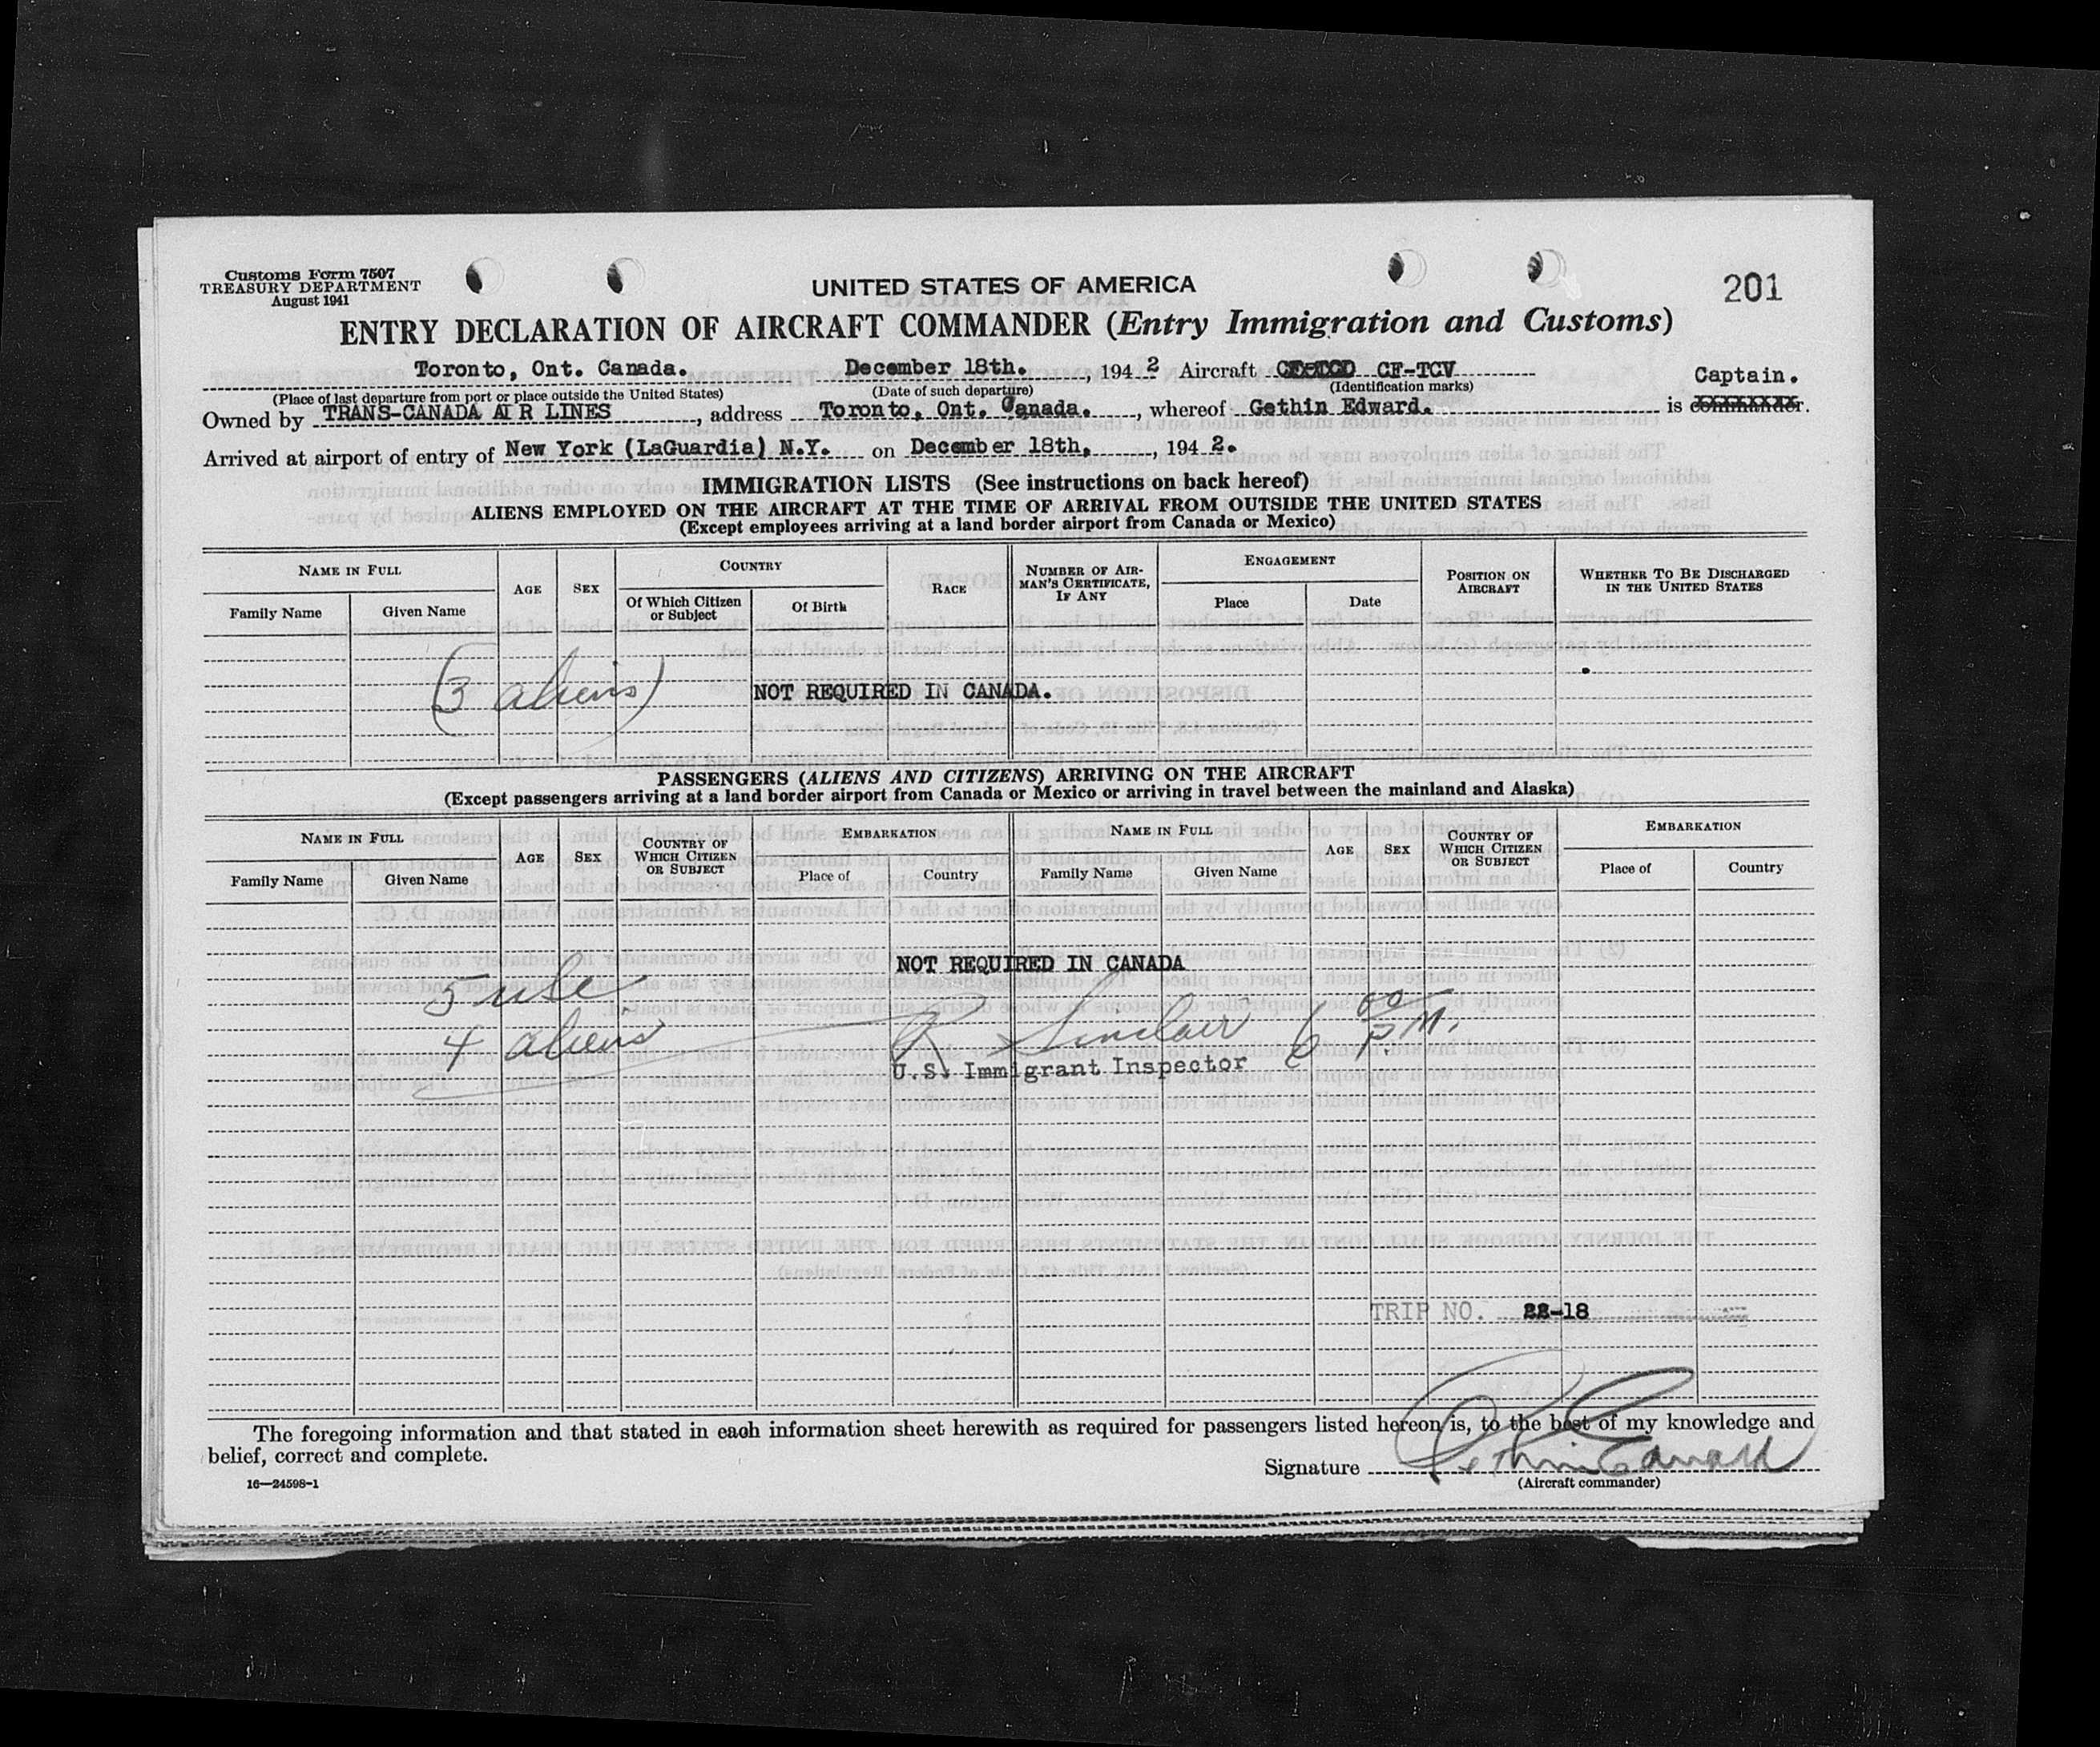 Customs Form 7507
TREASURY DEPARTMENT
August 1941
UNITED STATES OF AMERICA
201
ENTRY DECLARATION OF AIRCRAFT COMMANDER (Entry Immigration and Customs)
Toronto, Ont. Canada. December 18th. , 194 2 Aircraft CF-TCV
(Place of last departure from port or place outside the United States) (Date of such departure) (Identification marks)
Captain.
Owned by TRANS-CANADA AIR LINES , address Toronto, Ont. Canada. , whereof Gethin Edward. is commander.
Arrived at airport of entry of New York (LaGuardia) N.Y. on December 18th, , 194 2.
IMMIGRATION LISTS (See instructions on back hereof)
ALIENS EMPLOYED ON THE AIRCRAFT AT THE TIME OF ARRIVAL FROM OUTSIDE THE UNITED STATES
(Except employees arriving at a land border airport from Canada or Mexico)
NAME IN FULL
Family Name Given Name
AGE
SEX
COUNTRY
Of Which Citizen or Subject Of Birth
RACE
NUMBER OF AIRMAN'S CERTIFICATE, IF ANY
ENGAGEMENT
Place Date
POSITION ON AIRCRAFT
WHETHER TO BE DISCHARGED IN THE UNITED STATES
(3 aliens) NOT REQUIRED IN CANADA.
PASSENGERS (ALIENS AND CITIZENS) ARRIVING ON THE AIRCRAFT
(Except passengers arriving at a land border airport from Canada or Mexico or arriving in travel between the mainland and Alaska)
NAME IN FULL
Family Name Given Name
AGE
SEX
COUNTRY OF WHICH CITIZEN OR SUBJECT
EMBARKATION
Place of Country
NAME IN FULL
Family Name Given Name
AGE
SEX
COUNTRY OF WHICH CITIZEN OR SUBJECT
EMBARKATION
Place of Country
NOT REQUIRED IN CANADA
5 usc
4 aliens Sinclair 6 00 P.M.
U.S. Immigrant Inspector
TRIP NO. 22-18
The foregoing information and that stated in each information sheet herewith as required for passengers listed hereon is, to the best of my knowledge and
belief, correct and complete.
Signature Gethin Edward
16—24598-1
(Aircraft commander)